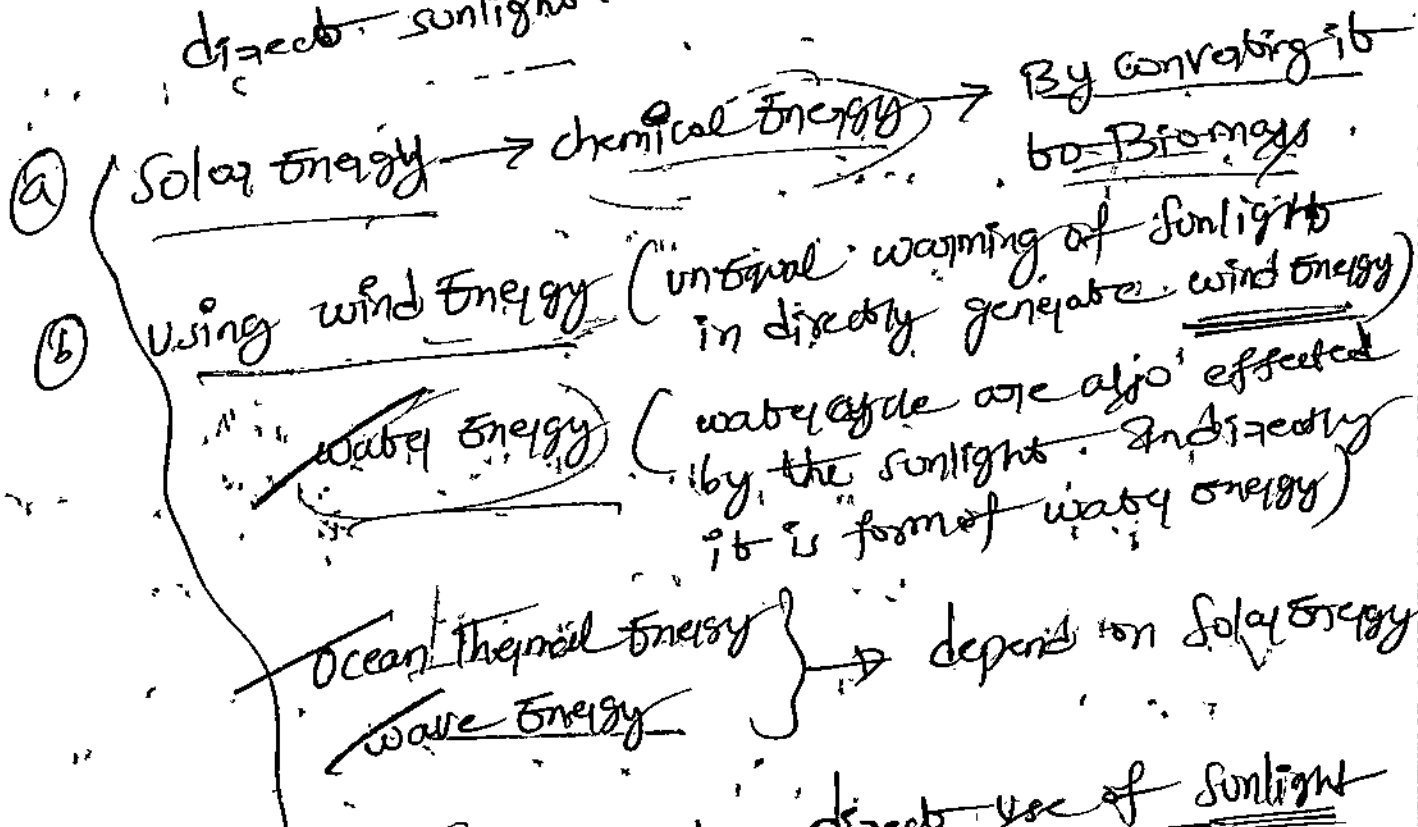 direct sunlight
(a) Solar Energy → chemical Energy → By converting it
to Biomass.
(b) Using wind Energy (unequal warming of sunlight
in directly generate wind Energy)
water Energy (water cycle are also effected
by the sunlight. Indirectly
it is form of water energy)
Ocean Thermal Energy
wave Energy } → depend on Solar Energy
direct use of sunlight